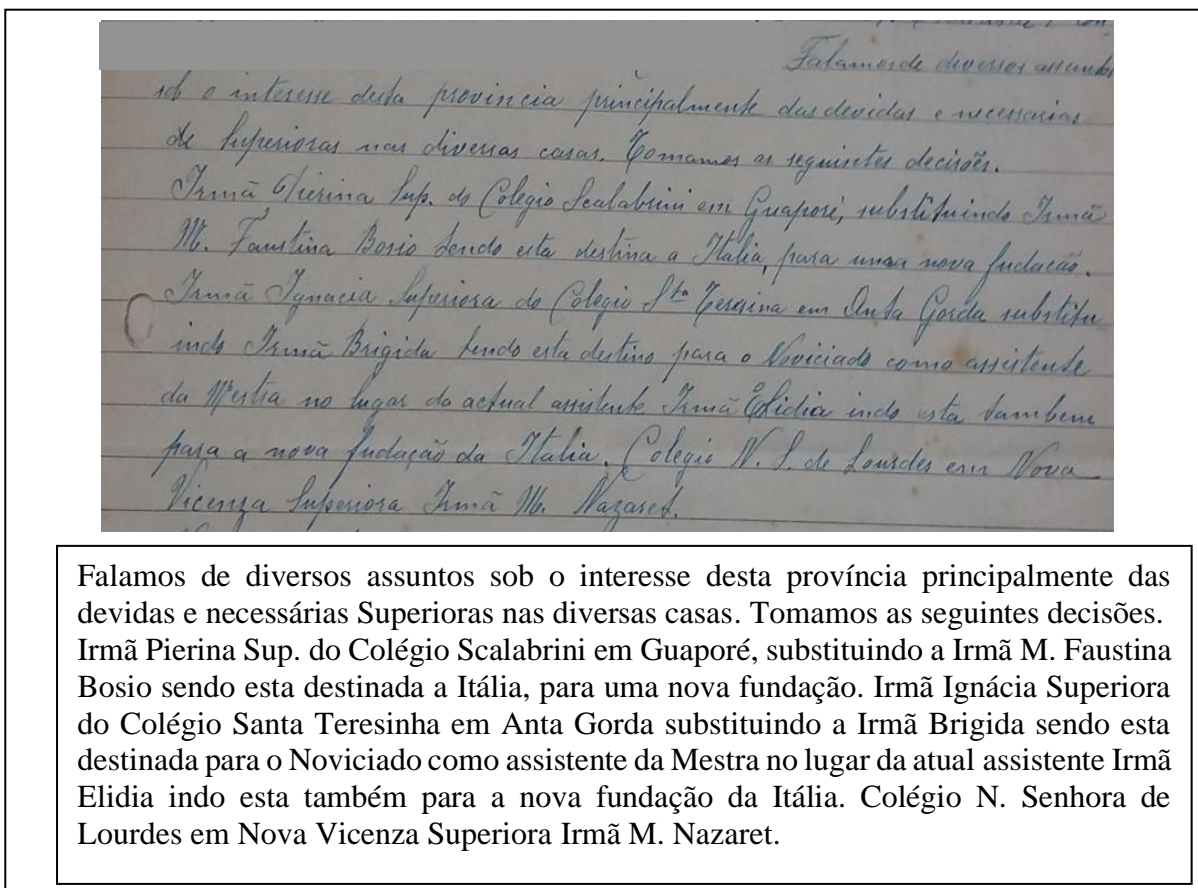 Falamos de diversos assuntos
sob o interesse desta provincia principalmente das devidas e necessarias
de Superioras nas diversas casas. Tomamos as seguintes decisões.
Irmã Pierina Sup. do Colegio Scalabrini em Guaporé, substituindo Irmã
M. Faustina Bosio sendo esta destina a Italia, para uma nova fudacão.
Irmã Ignacia Superiora do Colegio Sta Teresina em Anta Gorda substitu
indo Irmã Brigida tendo esta destino para o Noviciado como assistente
da Mestra no lugar da actual assistente Irmã Elidia indo esta tambem
para a nova fudação da Italia. Colegio N. S. de Lourdes em Nova
Vicenza Superiora Irmã M. Nazaret.
Falamos de diversos assuntos sob o interesse desta província principalmente das
devidas e necessárias Superioras nas diversas casas. Tomamos as seguintes decisões.
Irmã Pierina Sup. do Colégio Scalabrini em Guaporé, substituindo a Irmã M. Faustina
Bosio sendo esta destinada a Itália, para uma nova fundação. Irmã Ignácia Superiora
do Colégio Santa Teresinha em Anta Gorda substituindo a Irmã Brigida sendo esta
destinada para o Noviciado como assistente da Mestra no lugar da atual assistente Irmã
Elidia indo esta também para a nova fundação da Itália. Colégio N. Senhora de
Lourdes em Nova Vicenza Superiora Irmã M. Nazaret.